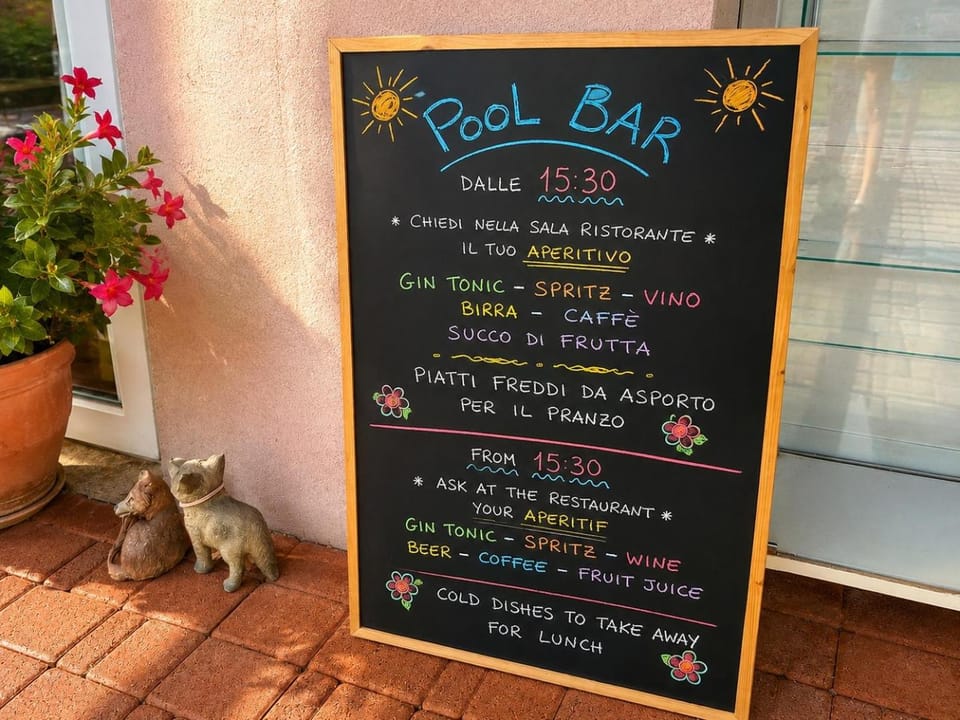 POOL BAR
DALLE 15:30
* CHIEDI NELLA SALA RISTORANTE *
IL TUO APERITIVO
GIN TONIC – SPRITZ – VINO
BIRRA – CAFFÈ
SUCCO DI FRUTTA
PIATTI FREDDI DA ASPORTO
PER IL PRANZO
FROM 15:30
* ASK AT THE RESTAURANT *
YOUR APERITIF
GIN TONIC – SPRITZ – WINE
BEER – COFFEE – FRUIT JUICE
COLD DISHES TO TAKE AWAY
FOR LUNCH